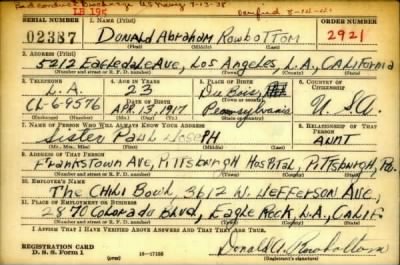 Bad conduct Discharge US Navy 7-13-38
IB 195 Verified 8-14-41
SERIAL NUMBER 1. NAME (Print) ORDER NUMBER
02387 DONALD ABRAHAM ROWBOTTOM 2921
(First) (Middle) (Last)
2. ADDRESS (Print)
5212 EAGLEDALE AVE, LOS ANGELES, L.A., CALIFORNIA
(Number and street or R. F. D. number) (Town) (County) (State)
3. TELEPHONE 4. AGE IN YEARS 5. PLACE OF BIRTH 6. COUNTRY OF CITIZENSHIP
L.A. 23 DU BOIS,
CL-6-9576 DATE OF BIRTH APR. 13, 1917 PENNSYLVANIA U.S.A.
(Exchange) (Number) (Mo.) (Day) (Yr.) (State or country)
7. NAME OF PERSON WHO WILL ALWAYS KNOW YOUR ADDRESS 8. RELATIONSHIP OF THAT PERSON
SISTER PAUL JOSEPH AUNT
(Mr., Mrs., Miss) (First) (Middle) (Last)
9. ADDRESS OF THAT PERSON
FRANKSTOWN AVE, PITTSBURGH HOSPITAL, PITTSBURGH, PA.
(Number and street or R. F. D. number) (Town) (County) (State)
10. EMPLOYER'S NAME
THE CHILI BOWL, 3612 W. JEFFERSON AVE,
11. PLACE OF EMPLOYMENT OR BUSINESS
2870 COLORADO BLVD, EAGLE ROCK, L.A., CALIF.
(Number and street or R. F. D. number) (Town) (County) (State)
I AFFIRM THAT I HAVE VERIFIED ABOVE ANSWERS AND THAT THEY ARE TRUE.
REGISTRATION CARD
D. S. S. Form 1 16-17105 Donald A. Rowbottom
(over) (Registrant's signature)